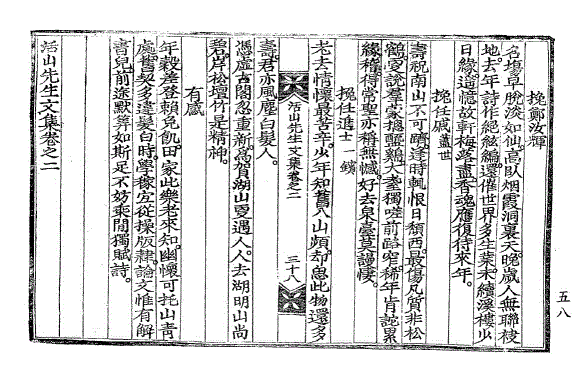 挽鄭汝輝
名塲早脫淡如仙高臥烟霞洞裏天晚歲人無聯枝
地去年詩作絕絃編還催世界多生葉未續溪樓少
日緣遥憶故軒梅落盡香魂應復待來年
挽任戚盡世
壽祝南山不可躋達時輒恨日頹西最傷凡質非松
鶴爰說羣蒙摠醯鷄大耋獨嗟前路窄稀年肯詑累
緣稽得常聖亦稱無憾好去泉臺莫謾悽
挽任進士一錢
老去情懷最苦辛少年知舊八山頻却念此物還多
活山先生文集卷之二 三十八
壽君亦風塵白髮人
憑虛古閣忽重新高賀湖山更遇人人去湖明山尚
碧岸松壇竹是精神
有感
年穀差登賴免飢田家此樂老來知幽懷可托山青
處舊契多違髮白時學稼宜從操版隸論文惟有解
書兒前途默筭如斯足不妨乘閒獨賦詩
活山先生文集卷之二
五八